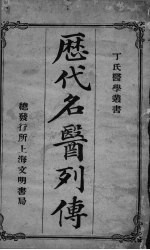 丁氏醫學叢書
歷代名醫列傳
總發行所上海文明書局